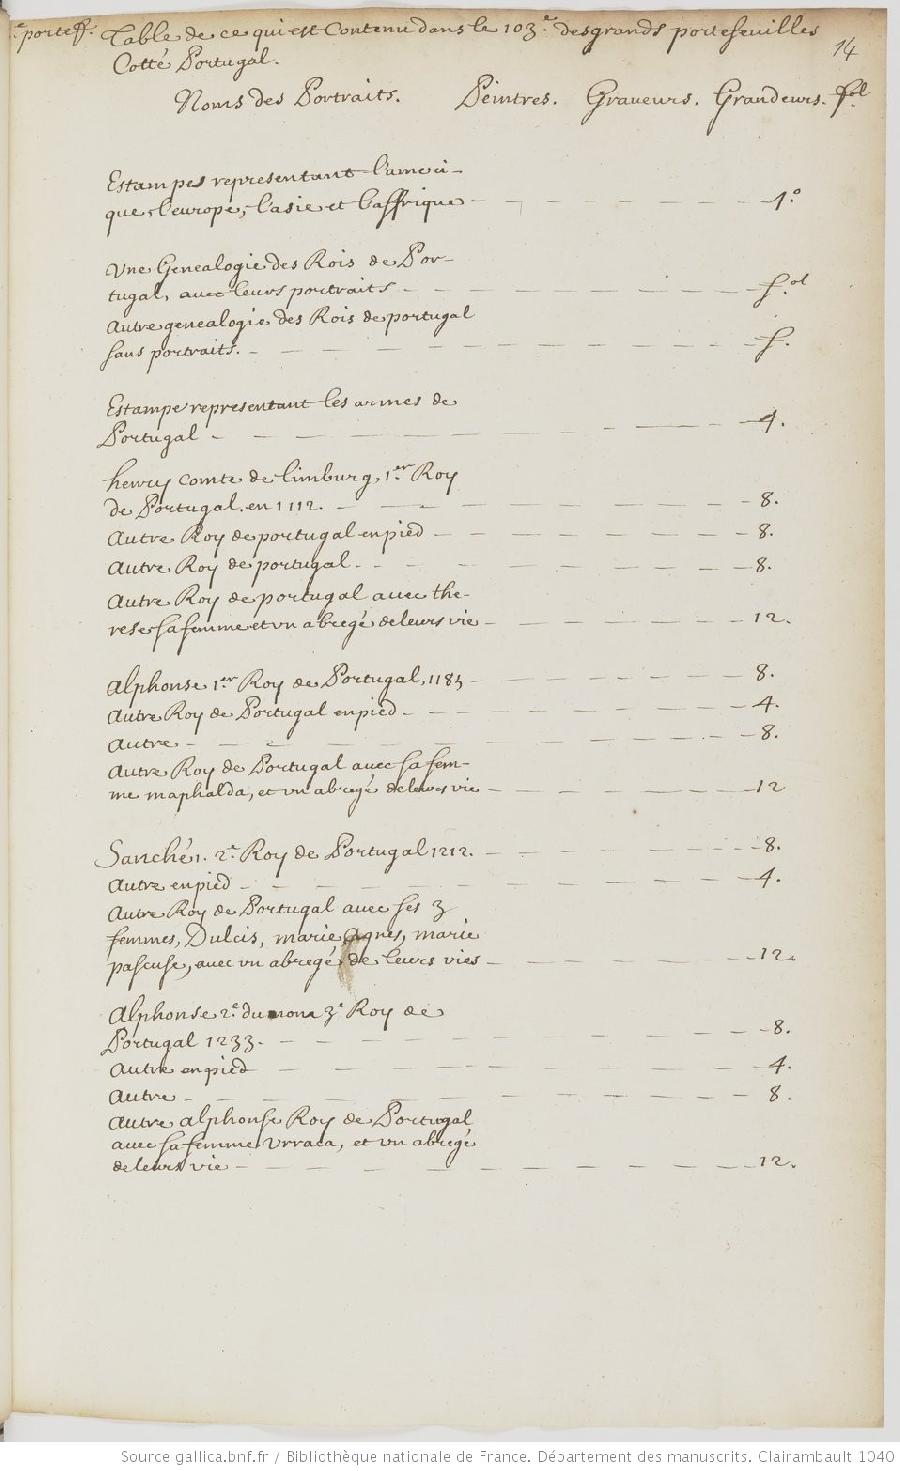 e porteff.
Table de ce qui est Contenu dans le 103.e des grands portefeuilles
14
Cotté Portugal.
Noms des Portraits. Peintres. Graveurs. Grandeurs. fol
Estampes representant l'ameri-
que, l'europe, l'asie et l'affrique 4°
Vne Genealogie des Rois de Por-
tugal, avec leurs portraits f.ol
Autre genealogie des Rois de portugal
sans portraits. f.
Estampe representant les armes de
Portugal 4.
henry comte de limburg, 1.er Roy
de Portugal en 1112. 8.
Autre Roy de portugal en pied 8.
Autre Roy de portugal. 8.
Autre Roy de portugal avec the-
rese sa femme et vn abregé de leurs vie 12.
Alphonse 1.er Roy de Portugal, 1185 8.
Autre Roy de Portugal en pied 4.
Autre 8.
Autre Roy de Portugal avec sa fem-
me maphalda, et vn abregé de leurs vie 12
Sanché 1. 2.e Roy de Portugal 1212. 8.
Autre en pied 4.
Autre Roy de Portugal avec ses 3
femmes, Dulcis, marie agnes, marie
pascuse, avec vn abregé de leurs vies 12.
Alphonse 2.e du nom 3.e Roy de
Portugal 1233. 8.
Autre en pied 4.
Autre 8.
Autre alphonse Roy de Portugal
avec sa femme Vrraca, et vn abregé
de leurs vie 12.
Source gallica.bnf.fr / Bibliothèque nationale de France. Département des manuscrits. Clairambault 1040